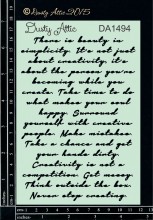 © Dusty Attic 2015
Dusty Attic DA1494
There is beauty in
simplicity. It's not just
about creativity, it's
about the person you're
becoming while you
create. Take time to do
what makes your soul
happy. Surround
yourself with creative
people. Make mistakes.
Take a chance and get
your hands dirty.
Creativity is not a
competition. Get messy.
Think outside the box.
Never stop creating.